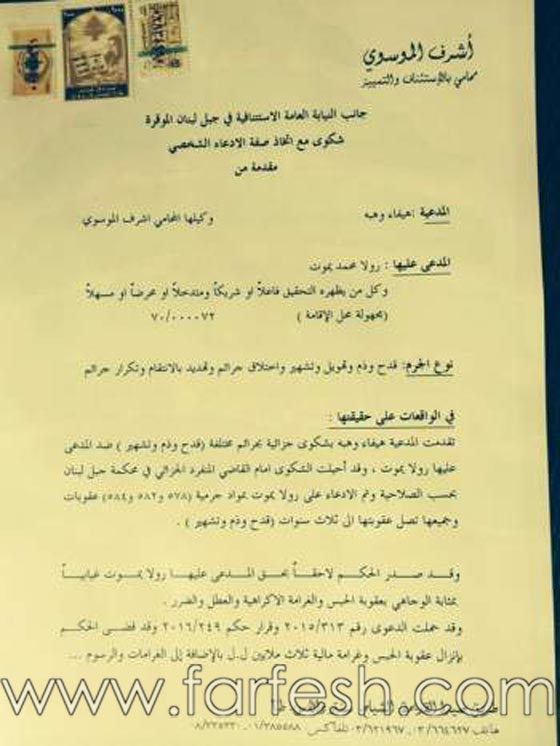 أشرف الموسوي
محامي بالإستئناف والتمييز
جانب النيابة العامة الاستئنافية في جبل لبنان الموقرة
شكوى مع اتخاذ صفة الادعاء الشخصي
مقدمة من
المدعية :هيفاء وهبه وكيلها المحامي اشرف الموسوي
المدعى عليها : رولا محمد يموت
وكل من يظهره التحقيق فاعلاً او شريكاً ومتدخلاً او محرضاً او مسهلاً
(مجهولة محل الإقامة ) ٧٠/٠٠٠٠٧٢
نوع الجرم: قدح وذم وتهويل وتشهير واختلاق جرائم وتهديد بالانتقام وتكرار جرائم
في الواقعات على حقيقتها :
تقدمت المدعية هيفاء وهبه بشكوى جزائية بجرائم مختلفة (قدح وذم وتشهير ) ضد المدعى
عليها رولا يموت ، وقد أحيلت الشكوى امام القاضي المنفرد الجزائي في محكمة جبل لبنان
بحسب الصلاحية وتم الادعاء على رولا يموت بمواد جرمية (٥٧٨ و٥٨٢ و٥٨٤) عقوبات
وجميعها تصل عقوبتها الى ثلاث سنوات (قدح وذم وتشهير ) .
وقد صدر الحكم لاحقاً بحق المدعى عليها رولا يموت غيابياً
بمثابة الوجاهي بعقوبة الحبس والغرامة الاكراهية والعطل والضرر .
وقد حملت الدعوى رقم ٢٠١٥/٣١٣ وقرار حكم ٢٠١٦/٢٤٩ وقد قضى الحكم
بإنزال عقوبة الحبس وغرامة مالية ثلاث ملايين ل.ل بالإضافة إلى الغرامات والرسوم ...
www.farfesh.com
هاتف: ٠٣/٦٦٤٦٢٧ تلفاكس